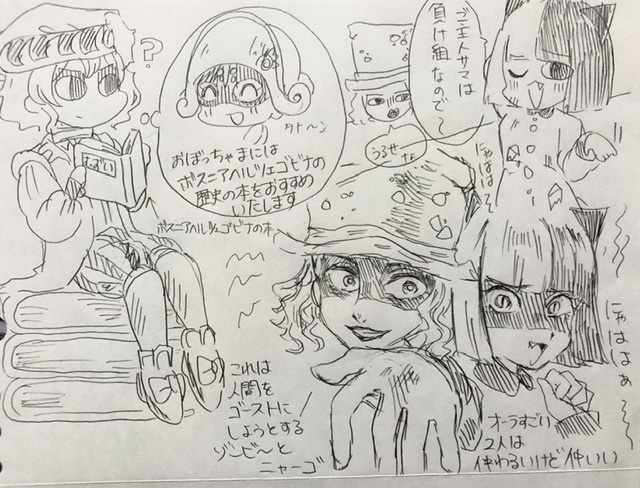 ゴ主人サマは
負け組なので〜
うるせーな
にゃははー
?
タト〜ン
おぼっちゃまには
ボスニアヘルツェゴビナの
歴史の本をおすすめ
いたします
ボスニアヘルツェゴビナの本
これは
人間を
ゴーストに
しようとする
ゾンビ〜と
ニャーゴ
にゃははぁ〜
オーラすごい
2人は
仲わるいけど仲いい